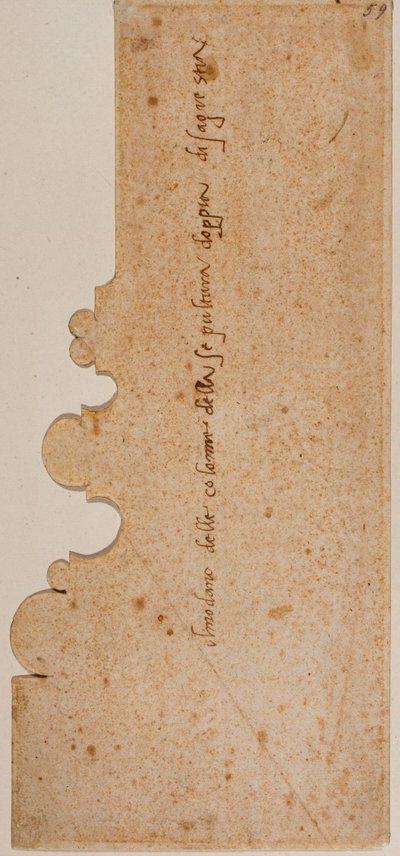 59
el modano delle colonne della sepultura doppia di sagrestia